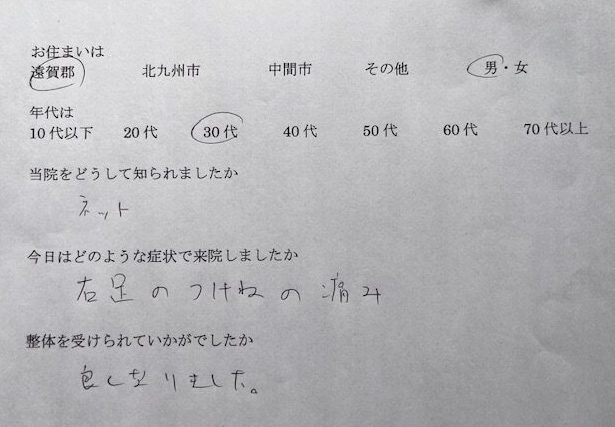 お住まいは
遠賀郡 北九州市 中間市 その他 男・女
年代は
10代以下 20代 30代 40代 50代 60代 70代以上
当院をどうして知られましたか
ネット
今日はどのような症状で来院しましたか
右足のつけねの痛み
整体を受けられていかがでしたか
良くなりました。